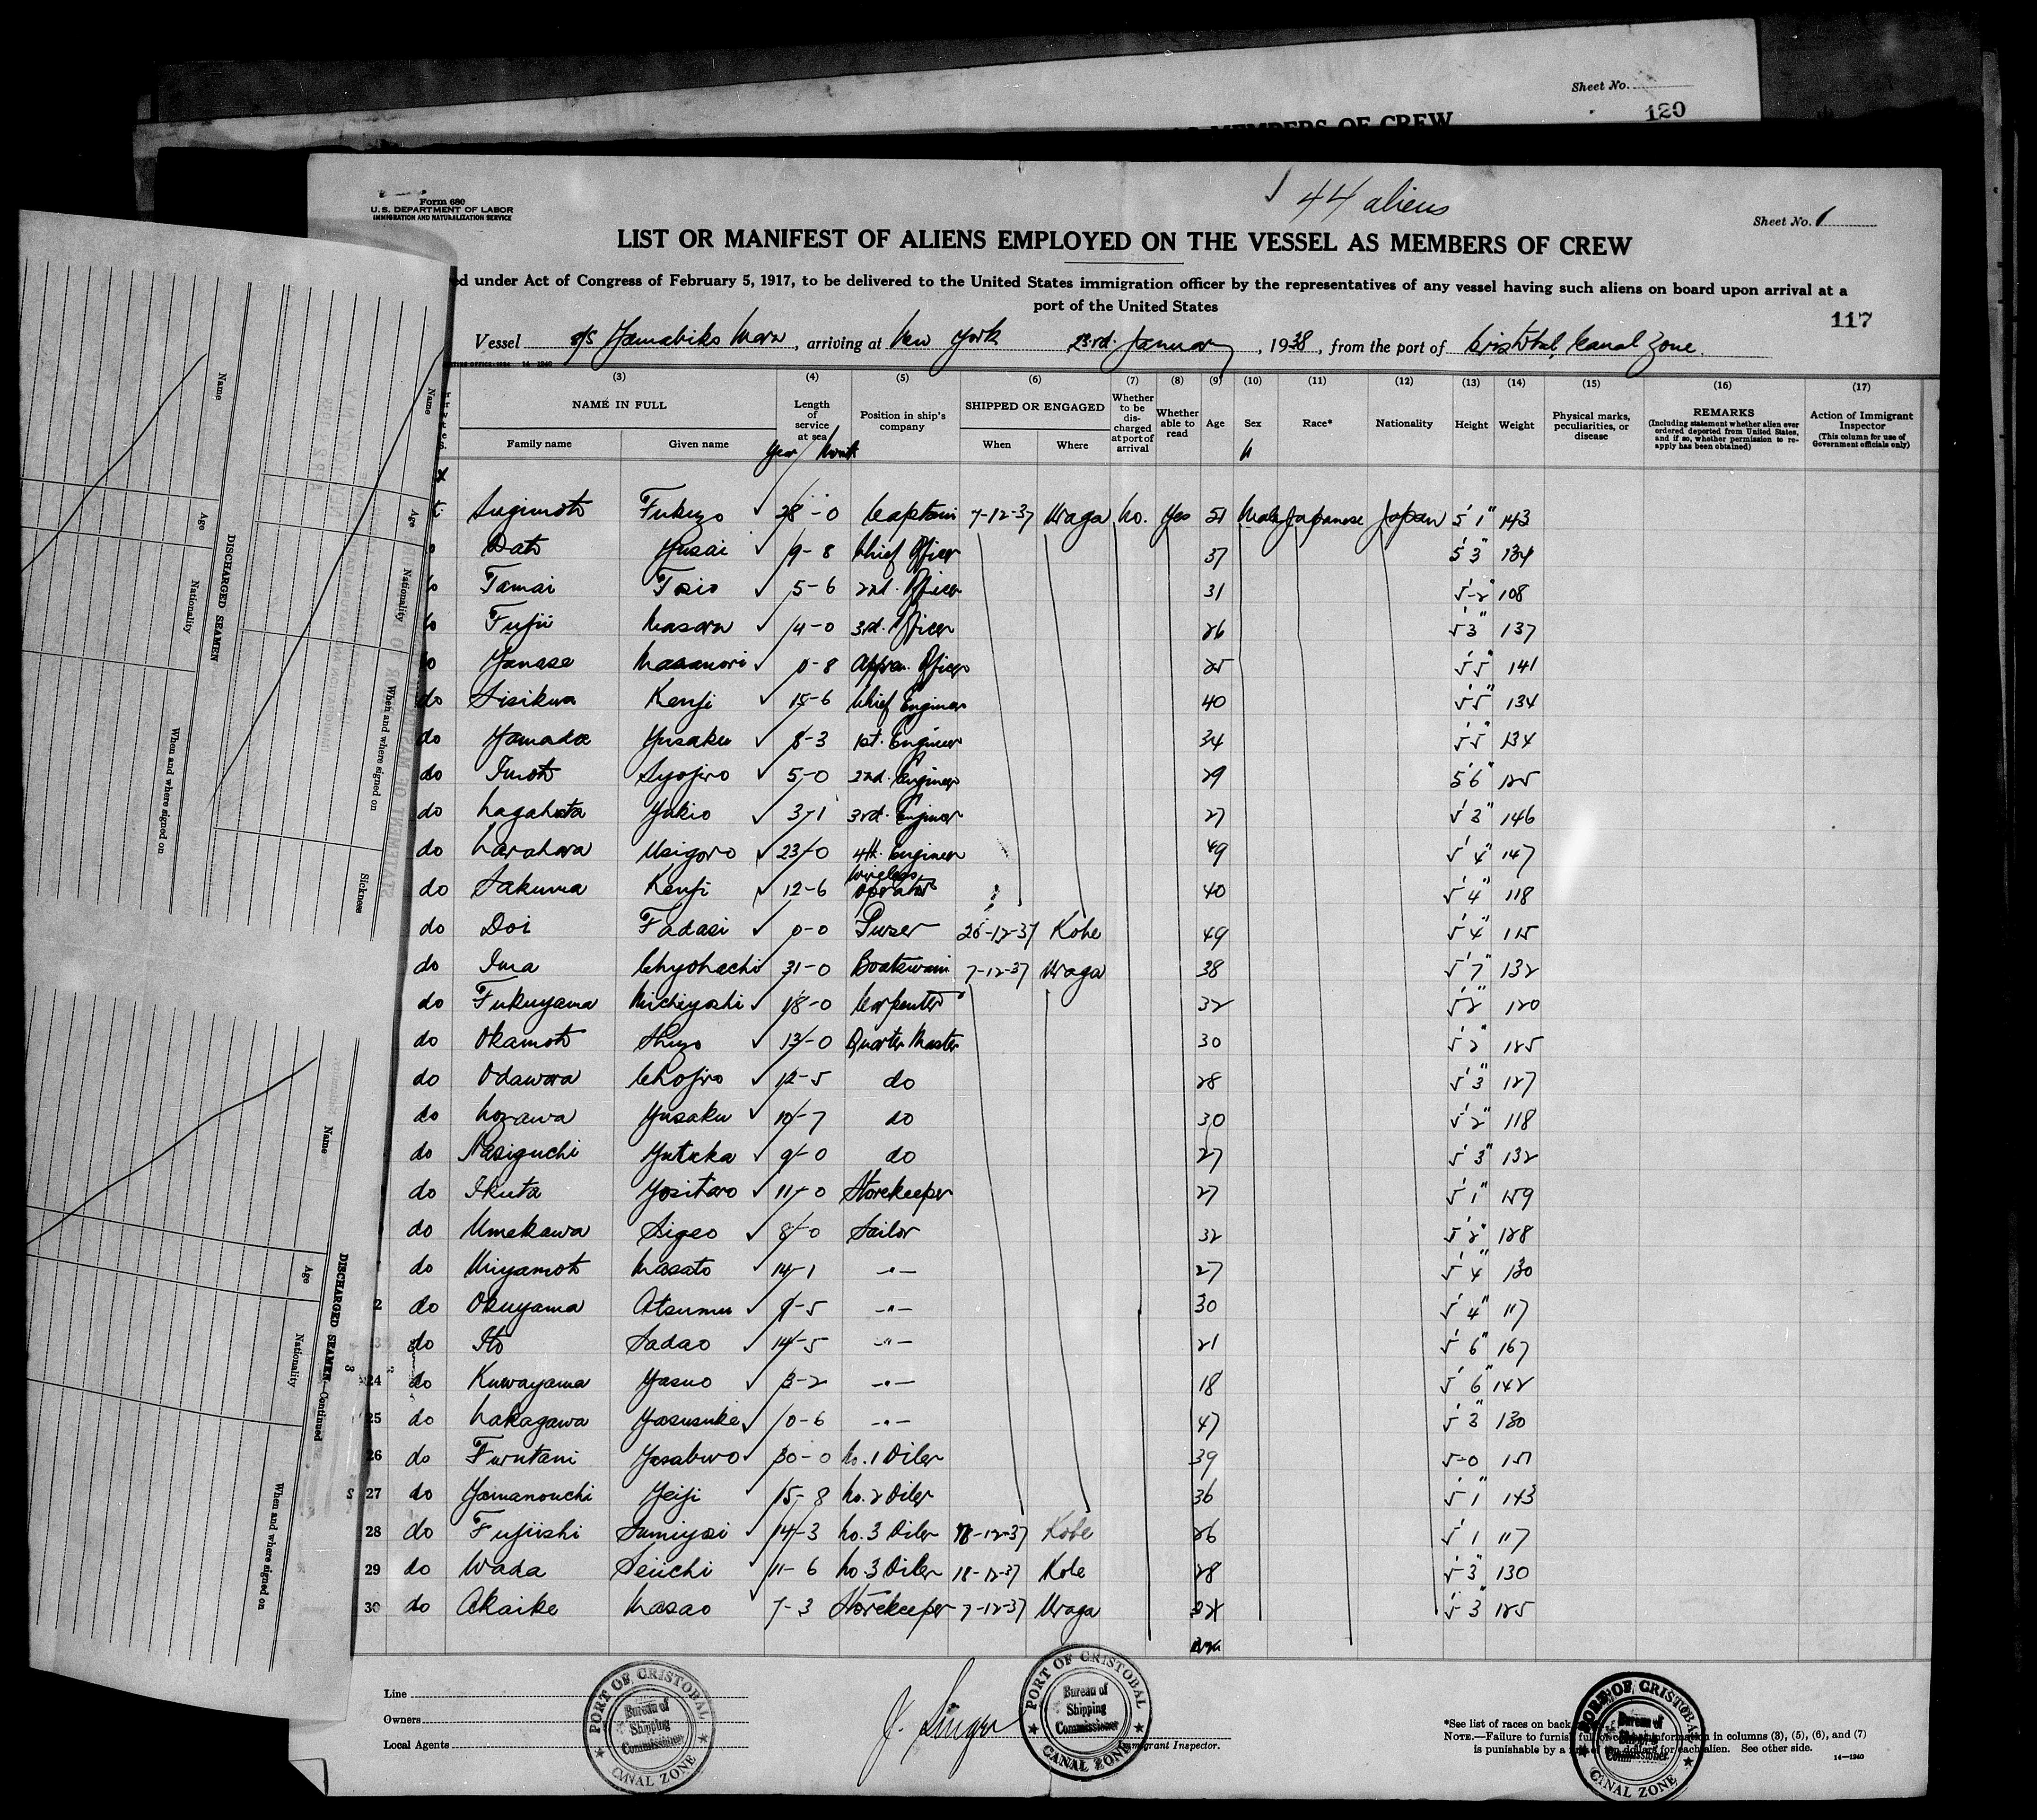 Sheet No.
120
AS MEMBERS OF CREW
Form 680
U. S. DEPARTMENT OF LABOR
IMMIGRATION AND NATURALIZATION SERVICE
44 aliens
Sheet No. 1
LIST OR MANIFEST OF ALIENS EMPLOYED ON THE VESSEL AS MEMBERS OF CREW
ed under Act of Congress of February 5, 1917, to be delivered to the United States immigration officer by the representatives of any vessel having such aliens on board upon arrival at a
port of the United States
117
Vessel s/s Yamabiko Maru, arriving at New York 23rd. January, 1938, from the port of Cristobal, Canal Zone.
(3) (4) (5) (6) (7) (8) (9) (10) (11) (12) (13) (14) (15) (16) (17)
NAME IN FULL Length of service at sea Position in ship's company SHIPPED OR ENGAGED Whether to be discharged at port of arrival Whether able to read Age Sex Race* Nationality Height Weight Physical marks, peculiarities, or disease REMARKS (Including statement whether alien ever ordered deported from United States, and if so, whether permission to reapply has been obtained) Action of Immigrant Inspector (This column for use of Government officials only)
Family name Given name When Where
Year / Month
Sugimoto Fukuzo 28-0 Captain 7-12-37 Uraga No. Yes 51 Male Japanese Japan 5'1" 143
Dato Yusai 9-8 Chief Officer 37 5'3" 134
Tamai Tosio 5-6 2nd. Officer 31 5'-2" 108
Fujii Masaru 4-0 3rd. Officer 26 5'3" 137
Yanase Masanori 0-8 Appren. Officer 25 5'5" 141
do Sisikura Kenji 15-6 Chief Engineer 40 5'5" 134
do Yamada Yusaku 8-3 1st. Engineer 34 5'5" 134
do Imoto Syojiro 5-0 2nd. Engineer 29 5'6" 125
do Nagahata Yukio 3-1 3rd. Engineer 27 5'3" 146
do Narahara Usigoro 23-0 4th. Engineer 49 5'4" 147
do Sakuma Kenji 12-6 Wireless Operator 40 5'4" 118
do Doi Tadasi 0-0 Purser 26-12-37 Kobe 49 5'4" 115
do Ima Chyohachi 31-0 Boatswain 7-12-37 Uraga 38 5'7" 132
do Fukuyama Michiyoshi 18-0 Carpenter 32 5'2" 120
do Okamoto Shuzo 13-0 Quarter Master 30 5'2" 125
do Odawara Chojiro 12-5 do 28 5'3" 127
do Nozawa Yusaku 10-7 do 30 5'2" 118
do Nasiguchi Yutaka 9-0 do 27 5'3" 132
do Ikuta Yositaro 11-0 Storekeeper 27 5'1" 159
do Umekawa Sigeo 8-0 Sailor 32 5'2" 128
do Miyamoto Masato 14-1 -"- 27 5'4" 130
2 do Okuyama Atsumu 9-5 -"- 30 5'4" 117
3 do Ito Sadao 14-5 -"- 21 5'6" 167
24 do Kuwayama Yasuo 3-2 -"- 18 5'6" 142
25 do Nakagawa Yasusuke 10-6 -"- 47 5'3" 130
26 do Furutani Yasaburo 30-0 No. 1 Oiler 39 5-0 151
27 do Yamanouchi Yeiji 15-8 No. 2 Oiler 36 5'1" 143
28 do Fujiishi Sumiyosi 14-3 No. 3 Oiler 18-12-37 Kobe 26 5'1 117
29 do Wada Seiichi 11-6 No 3 Oiler 18-12-37 Kobe 28 5'3" 130
30 do Akaike Masao 7-3 Storekeeper 7-12-37 Uraga 5'3" 125
Line
Owners
Local Agents
J. Singer
Immigrant Inspector.
PORT OF CRISTOBAL
Bureau of
Shipping
Commissioner
CANAL ZONE
PORT OF CRISTOBAL
Bureau of
Shipping
Commissioner
CANAL ZONE
PORT OF CRISTOBAL
Bureau of
Shipping
Commissioner
CANAL ZONE
*See list of races on back
NOTE.—Failure to furnish full information in columns (3), (5), (6), and (7)
is punishable by a fine of ten dollars for each alien. See other side.
14—1240
DISCHARGED SEAMEN
Name Age Nationality When and where signed on
Name Age Nationality When and where signed on Sickness
DISCHARGED SEAMEN—Continued
Name Age Nationality When and where signed on